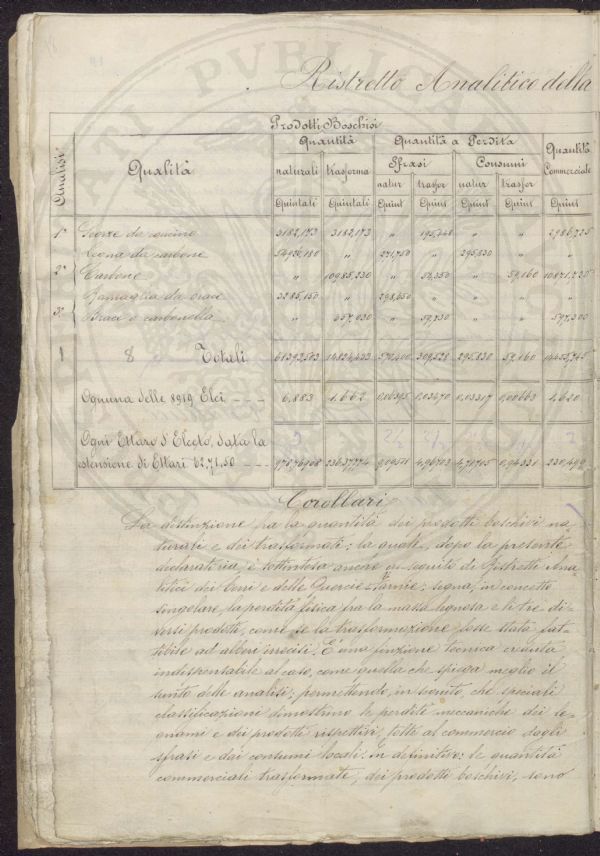 Ristretto Analitico della
Prodotti Boschivi
Analisi Qualità Quantità Quantità a Perdita Quantità Commerciale
naturali trasforma Sfrasi Consumi
natur trasfor natur trasfor
Quintali Quintali Quint Quint Quint Quint Quint
1ª Scorze da concino 3182,173 3182,173 " 195,448 " " 2986,725
Legna da carbone 54926,180 " 271,750 " 295,830 "
2ª Carbone " 10985,230 " 54,350 " 59,160 10871,720
Ramaglia da brace 3285,150 " 298,650 " " "
3ª Brace o carbonella " 657,030 " 59,730 " " 597,300
1 8 Totali 61393,503 14824,433 570,400 309,528 295,830 59,160 14455,745
Ognuna delle 8919 Elci 6,883 1,662 0,06395 0,03470 0,03317 0,00663 1,620
Ogni Ettaro d'Elceto, data la
estensione di Ettari 62,71,50 236,37774 4,70705 230,499
Corollari
La distinzione fra la quantità dei prodotti boschivi na-
turali e dei trasformati; la quale, dopo la presente
declaratoria, è sottintesa ancora ai seguiti di Ristretti Ana-
litici dei Cerri e delle Quercie-Farnie; segna, in concetto
singolare, la perdita fisica fra la massa lignosa e li tre di-
versi prodotti, come se la trasformazione fosse stata fat-
tibile ad alberi irrecisi. È una finzione tecnica creduta
indispensabile al caso, come quella che spiega meglio il
sunto delle analisi; permettendo, in seguito, che speciali
classificazioni dimostrino le perdite meccaniche dei le-
gnami e dei prodotti rispettivi, tolte al commercio dagli
sfrasi e dai consumi locali. In definitivo: le quantità
commerciali trasformate, dei prodotti boschivi, sono